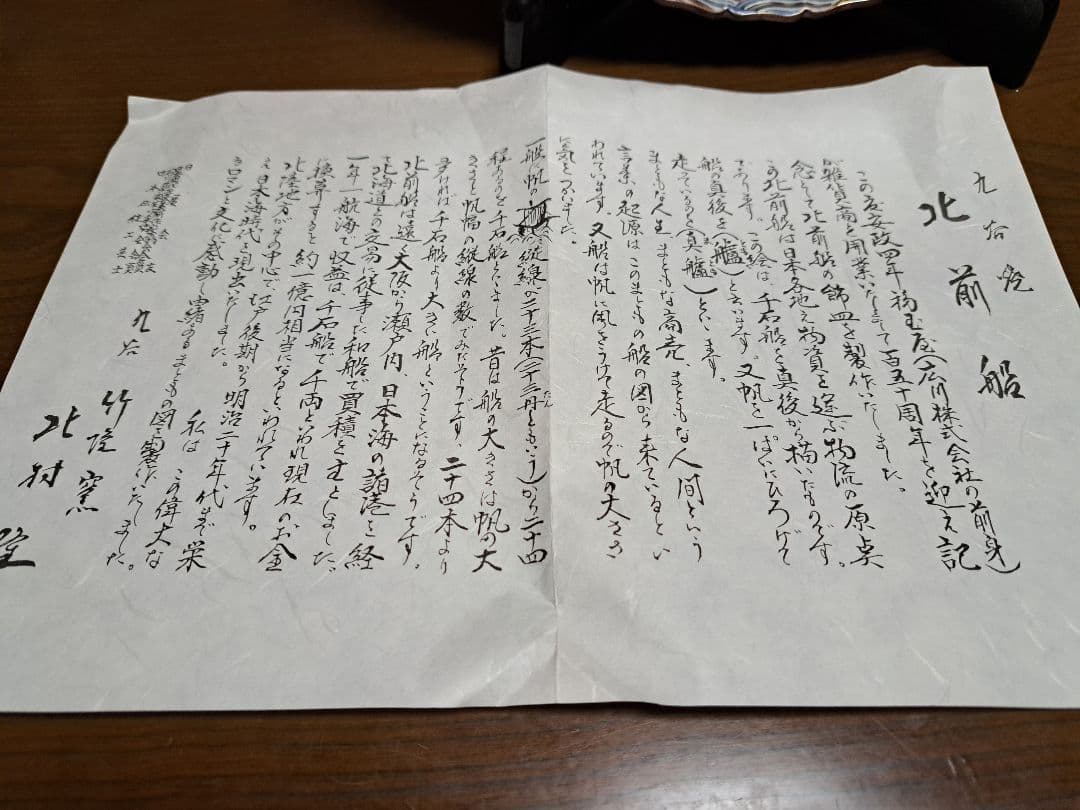 九谷焼
北前船
この度安政四年 福玉屋(広川株式会社の前身)
が雑貨商を開業いたしまして百五十周年を迎え記
念として北前船の飾皿を製作いたしました。
この北前船は日本各地え物資を運ぶ物流の原点
であります。この絵は、千石船を真後から描いたものです。
船の真後を(艫)と云います。又帆を一ぱいにひろげて
走っているのを(真艫)といいます。
まともな人生 まともな商売、まともな人間という
言葉の起源は、このまともの船の図から来ているとい
われています。又船は帆に風をうけて走るので帆の大きさ
に気をつかいました。
一船に帆の縦線が二十三本(二十三丹ともいう)から二十四
程あるのを千石船といいました。昔は船の大きさは帆の大
きさと帆幅の縦線の数でみたそうです。二十四本より
多ければ千石船より大きい船ということになるそうです。
北前船は遠く大阪から瀬戸内、日本海の諸港を経
て北海道との交易に従事した和船で買積を主としました。
一年一航海で収益は、千石船で千両といわれ現在のお金
に換算すると約一億円相当になるといわれています。
北陸地方がその中心で、江戸後期から明治二十年代まで栄
え日本海時代を現出いたしました。 私は この偉大な
るロマンと文化に感動し 窯で まともの図を いたしました。
九谷 竹隆窯
北村 隆